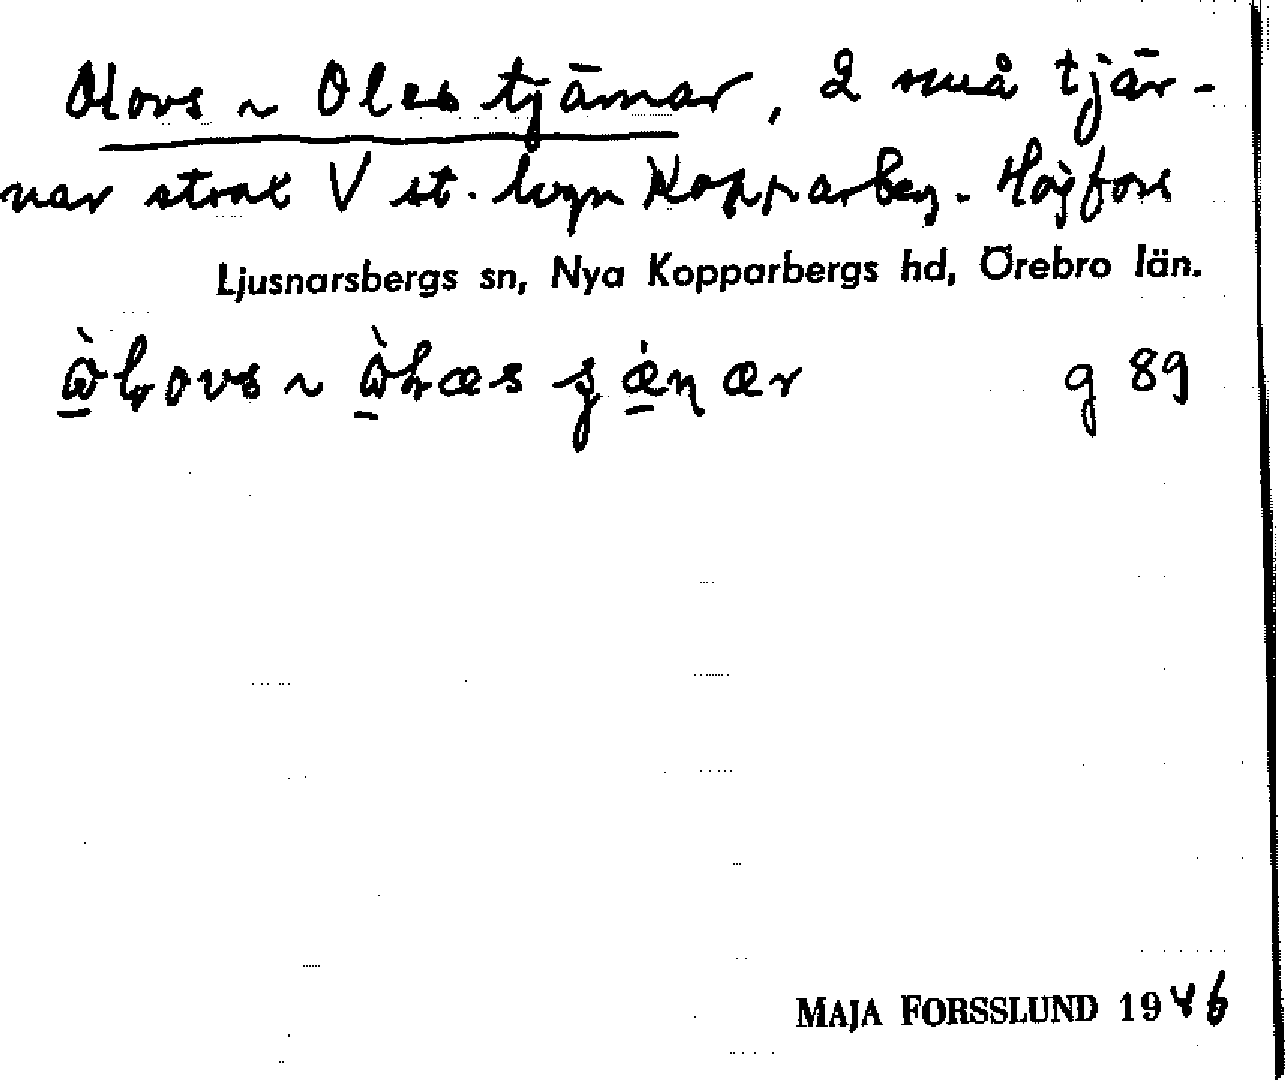 Olovs ~ Oles tjärnar, 2 små tjär-
nar strax V st. lvgn Kopparberg - Högfors
Ljusnarsbergs sn, Nya Kopparbergs hd, Örebro län.
g 89
MAJA FORSSLUND 1946